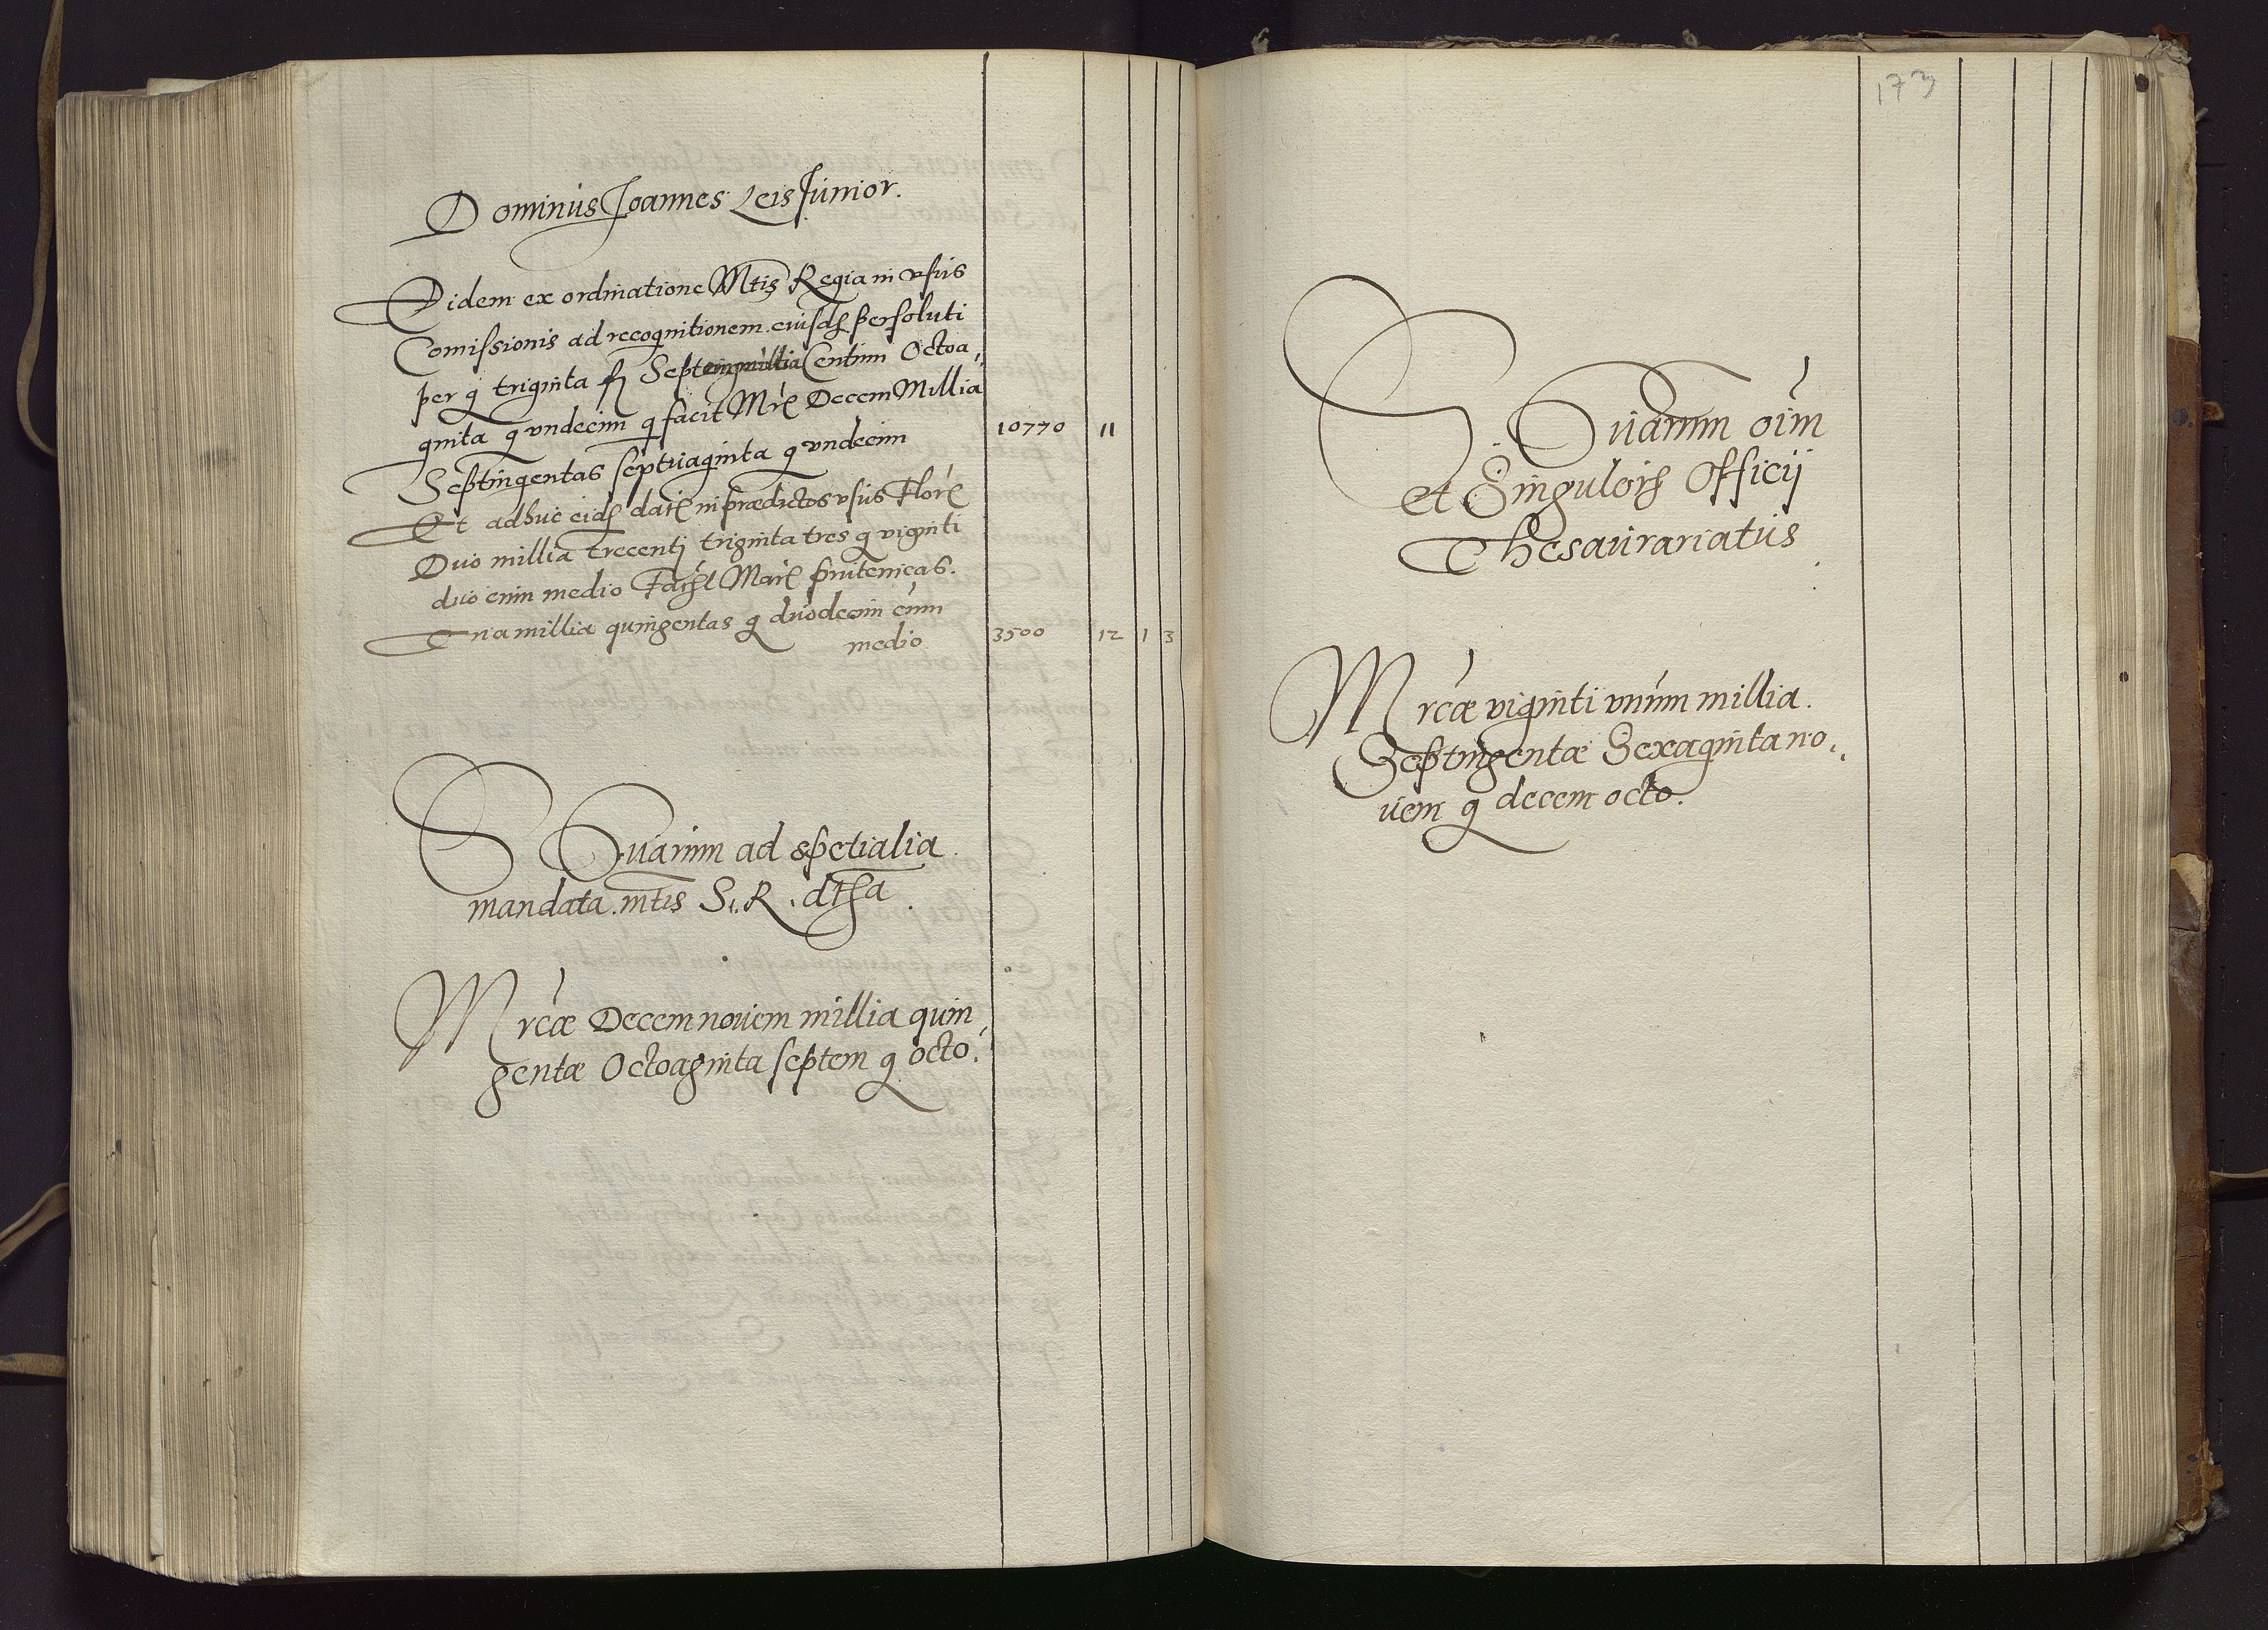 Dominus Joannes Leis Junior.
Eidem ex ordinatione Mtis Regia in usus
Comissionis ad recognitionem eiusdem persoluti
per g triginta fl Septemmillia Centum Octoa,
ginta g undecim q facit Mrc Decem Millia
Septingentas septuaginta g undecim
10770 11
Et adhuc eidem datis in praedictos usus Flor
Duo millia trecenti triginta tres g viginti
duo cum medio Mar prutenicas.
Tria millia quingentas g duodecim cum
medio
3500 12 1 3
Suarum ad spetialia
mandata mtis S. R.
Mrcæ Decemnovem millia quin
gentæ Octoaginta septem g octo.
173
Suarum oim
et Singulorum Officij
Thesaurariatus
Mrcæ viginti unum millia.
Septingentæ Sexaginta no,
vem g decem octo.